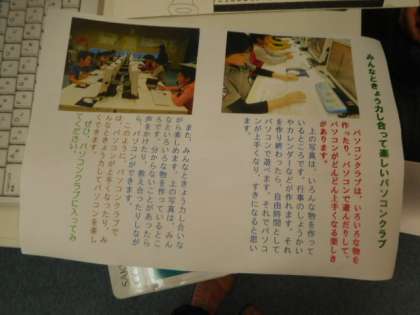 みんなときょう力し合って楽しいパソコンクラブ
パソコンクラブは、いろいろな物を
作ったり、パソコンで遊んだりして、
パソコンがどんどん上手くなる楽しさ
があります。
上の写真は、いろんな物を作って
いるところです。行事のしょうかい
やカレンダーなどが作れます。それ
を作り終わったら、自由時間として
パソコンで遊べます。それでパソコ
ンが上手くなり、すきになると思い
ます。
また、みんなときょう力し合いな
がら楽しめます。上の写真は、みん
なでいろいろな物を作っているとこ
ろです。分からないことがあったら
声をかけたり、教え合ったりしなが
ら、パソコンができます。
このように、パソコンクラブで
は、パソコンが上手くなったり、み
んなときょう力してパソコンを楽し
んだりできます。
ぜひ、パソコンクラブに入ってみ
てください。